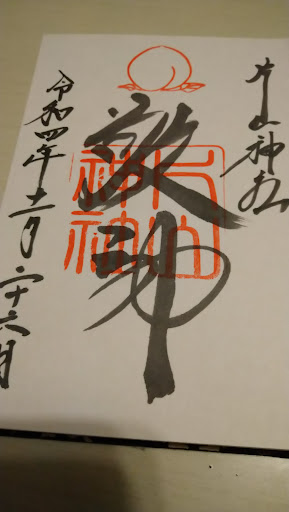 片山神社
敬神
片山
神社
令和四年十二月二十六日